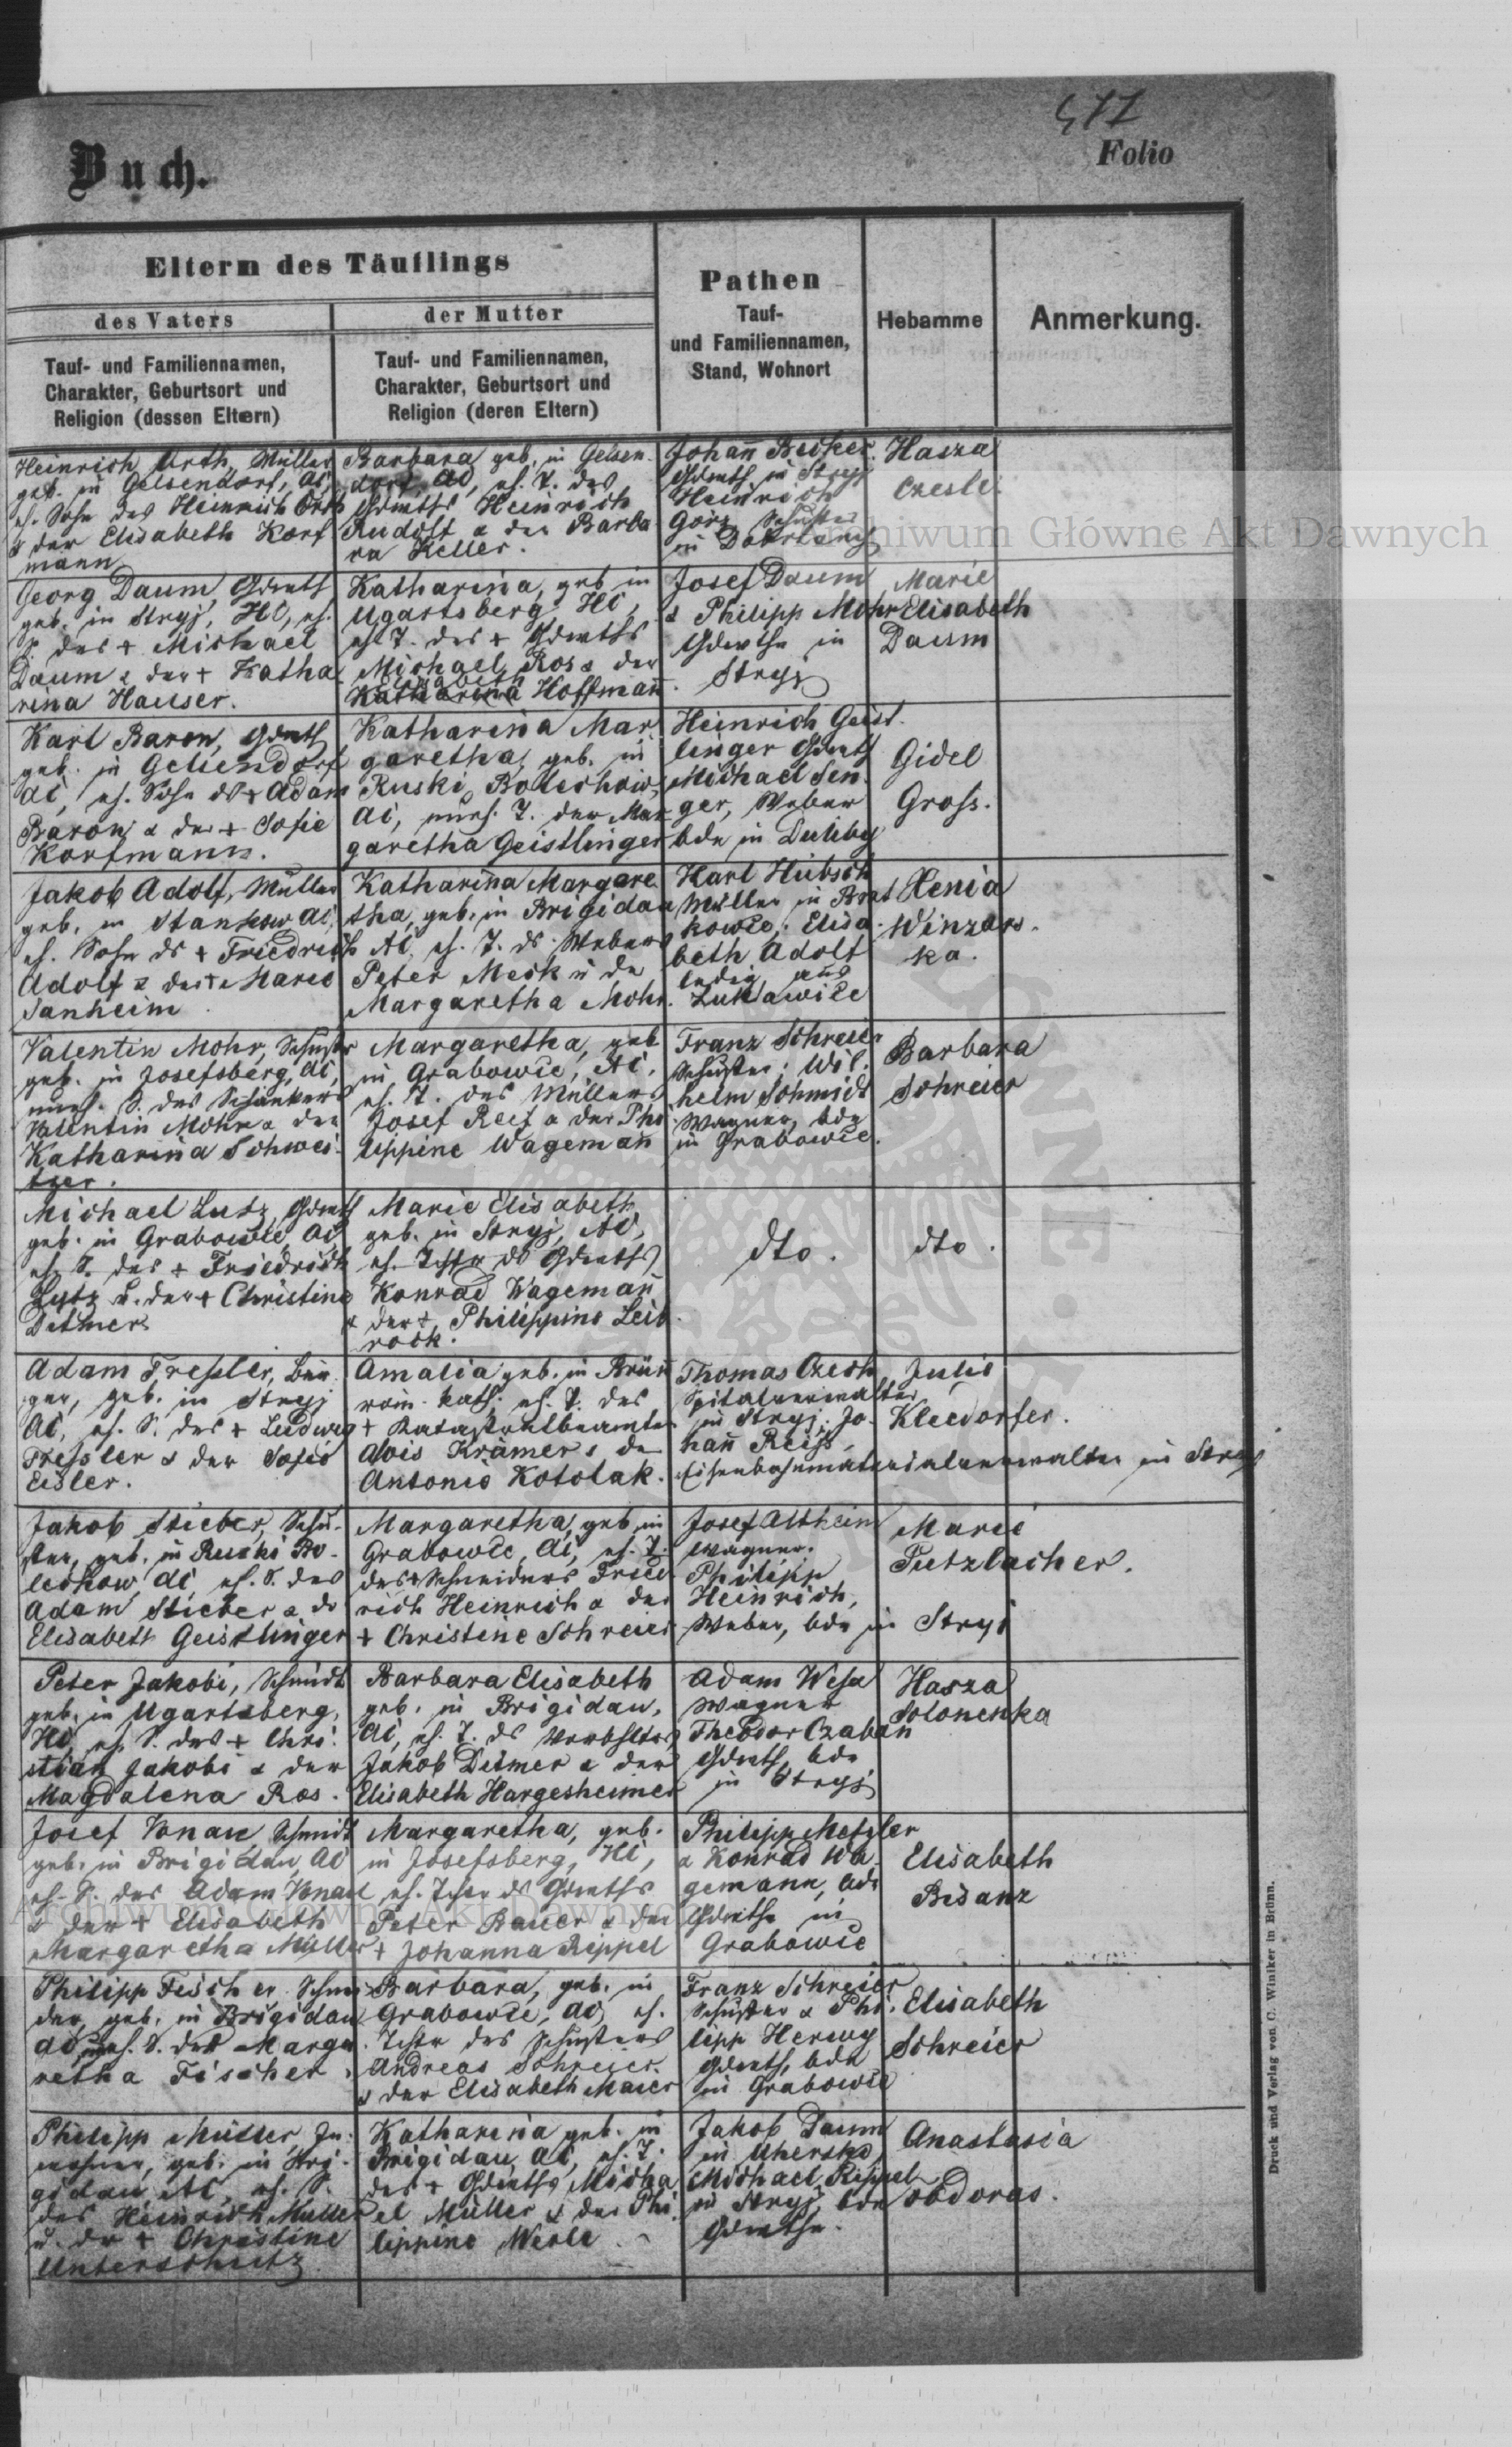 477
Folio
Buch.
Eltern des Täuflings
des Vaters
Tauf- und Familiennamen,
Charakter, Geburtsort und
Religion (dessen Eltern)
der Mutter
Tauf- und Familiennamen,
Charakter, Geburtsort und
Religion (deren Eltern)
Pathen
Tauf-
und Familiennamen,
Stand, Wohnort
Hebamme
Anmerkung.
Heinrich Orth, Müller
geb. in Gelsendorf, AC,
eh. Sohn des Heinrich Orth
& der Elisabeth Korf
mann
Barbara geb. in Gelsen-
dorf, AC, eh. T. des
Heinrich
Rudolf & der Barba
ra Keller.
Johann Becker
in Stryj
Heinrich
Görz Schuster
in
Hasza
Czesle.
Georg Daum,
geb. in Stryj, HC, eh.
S. des + Michael
Daum & der + Katha
rina Hauser.
Katharina, geb in
Ugartsberg HC,
eh T. des +
Michael Ros & der
Elisabeth
Katharina Hoffmann.
Josef Daum
& Philipp Mohr
in
Stryj
Marie
Elisabeth
Daum
Karl Baron,
geb. in Gelsendorf
AC, eh. Sohn des + Adam
Baron & der + Sofie
Korfmann.
Katharina Mar
garetha, geb. in
Ruski Bolechow,
AC, uneh. T. der Mar
garetha Geistlinger
Heinrich Geist-
linger
Michael Sen
ger, Weber
bde in Duliby
Gidel
Gross.
Jakob Adolf, Müller
geb. in Stankow AC,
eh. Sohn ds + Friedrich
Adolf & der + Marie
Sanheim
Katharina Margare
tha, geb. in Brigidau
AC, eh. T. ds Webers
Peter Meck u der
Margaretha Mohr.
Karl Hübsch
Müller in Brat
kowce; Elisa-
beth Adolf
ledig aus
Lukawice
Xenia
Winzars-
ka.
Valentin Mohr, Schuster
geb. in Josefsberg, AC,
uneh. S. des Schankers
Valentin Mohr & der
Katharina Schwei-
tzer.
Margaretha, geb
in Grabowce, AC,
eh. T. des Müllers
Josef Reef & der Phi
lippine Wagemann
Franz Schreier
Schuster; Wil-
helm Schmidt
Wagner, bde
in Grabowce.
Barbara
Schreier
Michael Lutz,
geb. in Grabowce, AC,
eh. S. des + Friedrich
Lutz u. der + Christine
Detmer
Marie Elisabeth
geb. in Stryj, AC,
eh. Tchtr ds
Konrad Wagemann
& der + Philippine Leib
rock.
dto.
dto.
Adam Fressler,
geb. in Stryj
AC, eh. S. des + Ludwig
Fressler & der Sofie
Eisler.
Amalia geb. in Brünn
röm. kath. eh. T. des
+ Katastralbeamten
Alois Krämer & der
Antonie Kotolak.
Thomas Czech,
Spitalverwalter
in Stryj; Jo-
hann Reiss,
Eisenbahnmaterialverwalter in Stryj
Julie
Kleedorfer.
Jakob Stieber, Schu-
ster, geb. in Ruski Bo-
lechow, AC, eh. S. des
Adam Stieber & der
Elisabeth Geistlinger
Margaretha, geb in
Grabowce, AC, eh. T.
des + Schneiders Fried
rich Heinrich & der
+ Christine Schreier
Josef Altheim
Wagner.
Philipp
Heinrich,
Weber, bde in Stryj
Marie
Putzlacher.
Peter Jakobi, Schmidt
geb. in Ugartsberg,
HC, eh. S. des + Chri-
stian Jakobi & der
Magdalena Ros.
Barbara Elisabeth
geb. in Brigidau,
AC, eh. T. ds
Jakob Detmer & der
Elisabeth Hargesheimer
Adam Wesa
Wagner
Theodor Czaban
bde
in Stryj
Hasza
Solonenka
Josef Konau, Schmidt
geb. in Brigidau, AC
eh. S. des Adam Konau
& der + Elisabeth
Margaretha Müller
Margaretha, geb.
in Josefsberg, HC,
eh. Tchtr ds
Peter Bauer & der
+ Johanna Rippel
Philipp Metzler
& Konrad Wa
gemann, bde
in
Grabowce
Elisabeth
Bisanz
Philipp Fischer, Schnei
der, geb. in Brigidau
AC, uneh. S. der Marga
retha Fischer.
Barbara, geb. in
Grabowce, AC, eh.
Tchtr des Schusters
Andreas Schreier
& der Elisabeth Maier
Franz Schreier
Schuster & Phi-
lipp Herwy
bde
in Grabowce
Elisabeth
Schreier
Philipp Müller, In-
wohner, geb. in Bri-
gidau, AC, eh. S.
des Heinrich Müller
u. der + Christine
Unterschütz
Katharina geb. in
Brigidau, AC, eh. T.
des + Micha
el Müller & der Phi
lippine Werle.
Jakob Daum
in Uhersko,
Michael Rippel
in Stryj, bde
Anastasia
Obdoras.
Druck und Verlag von C. Winiker in Brünn.
Archiwum Główne Akt Dawnych
Archiwum Główne Akt Dawnych